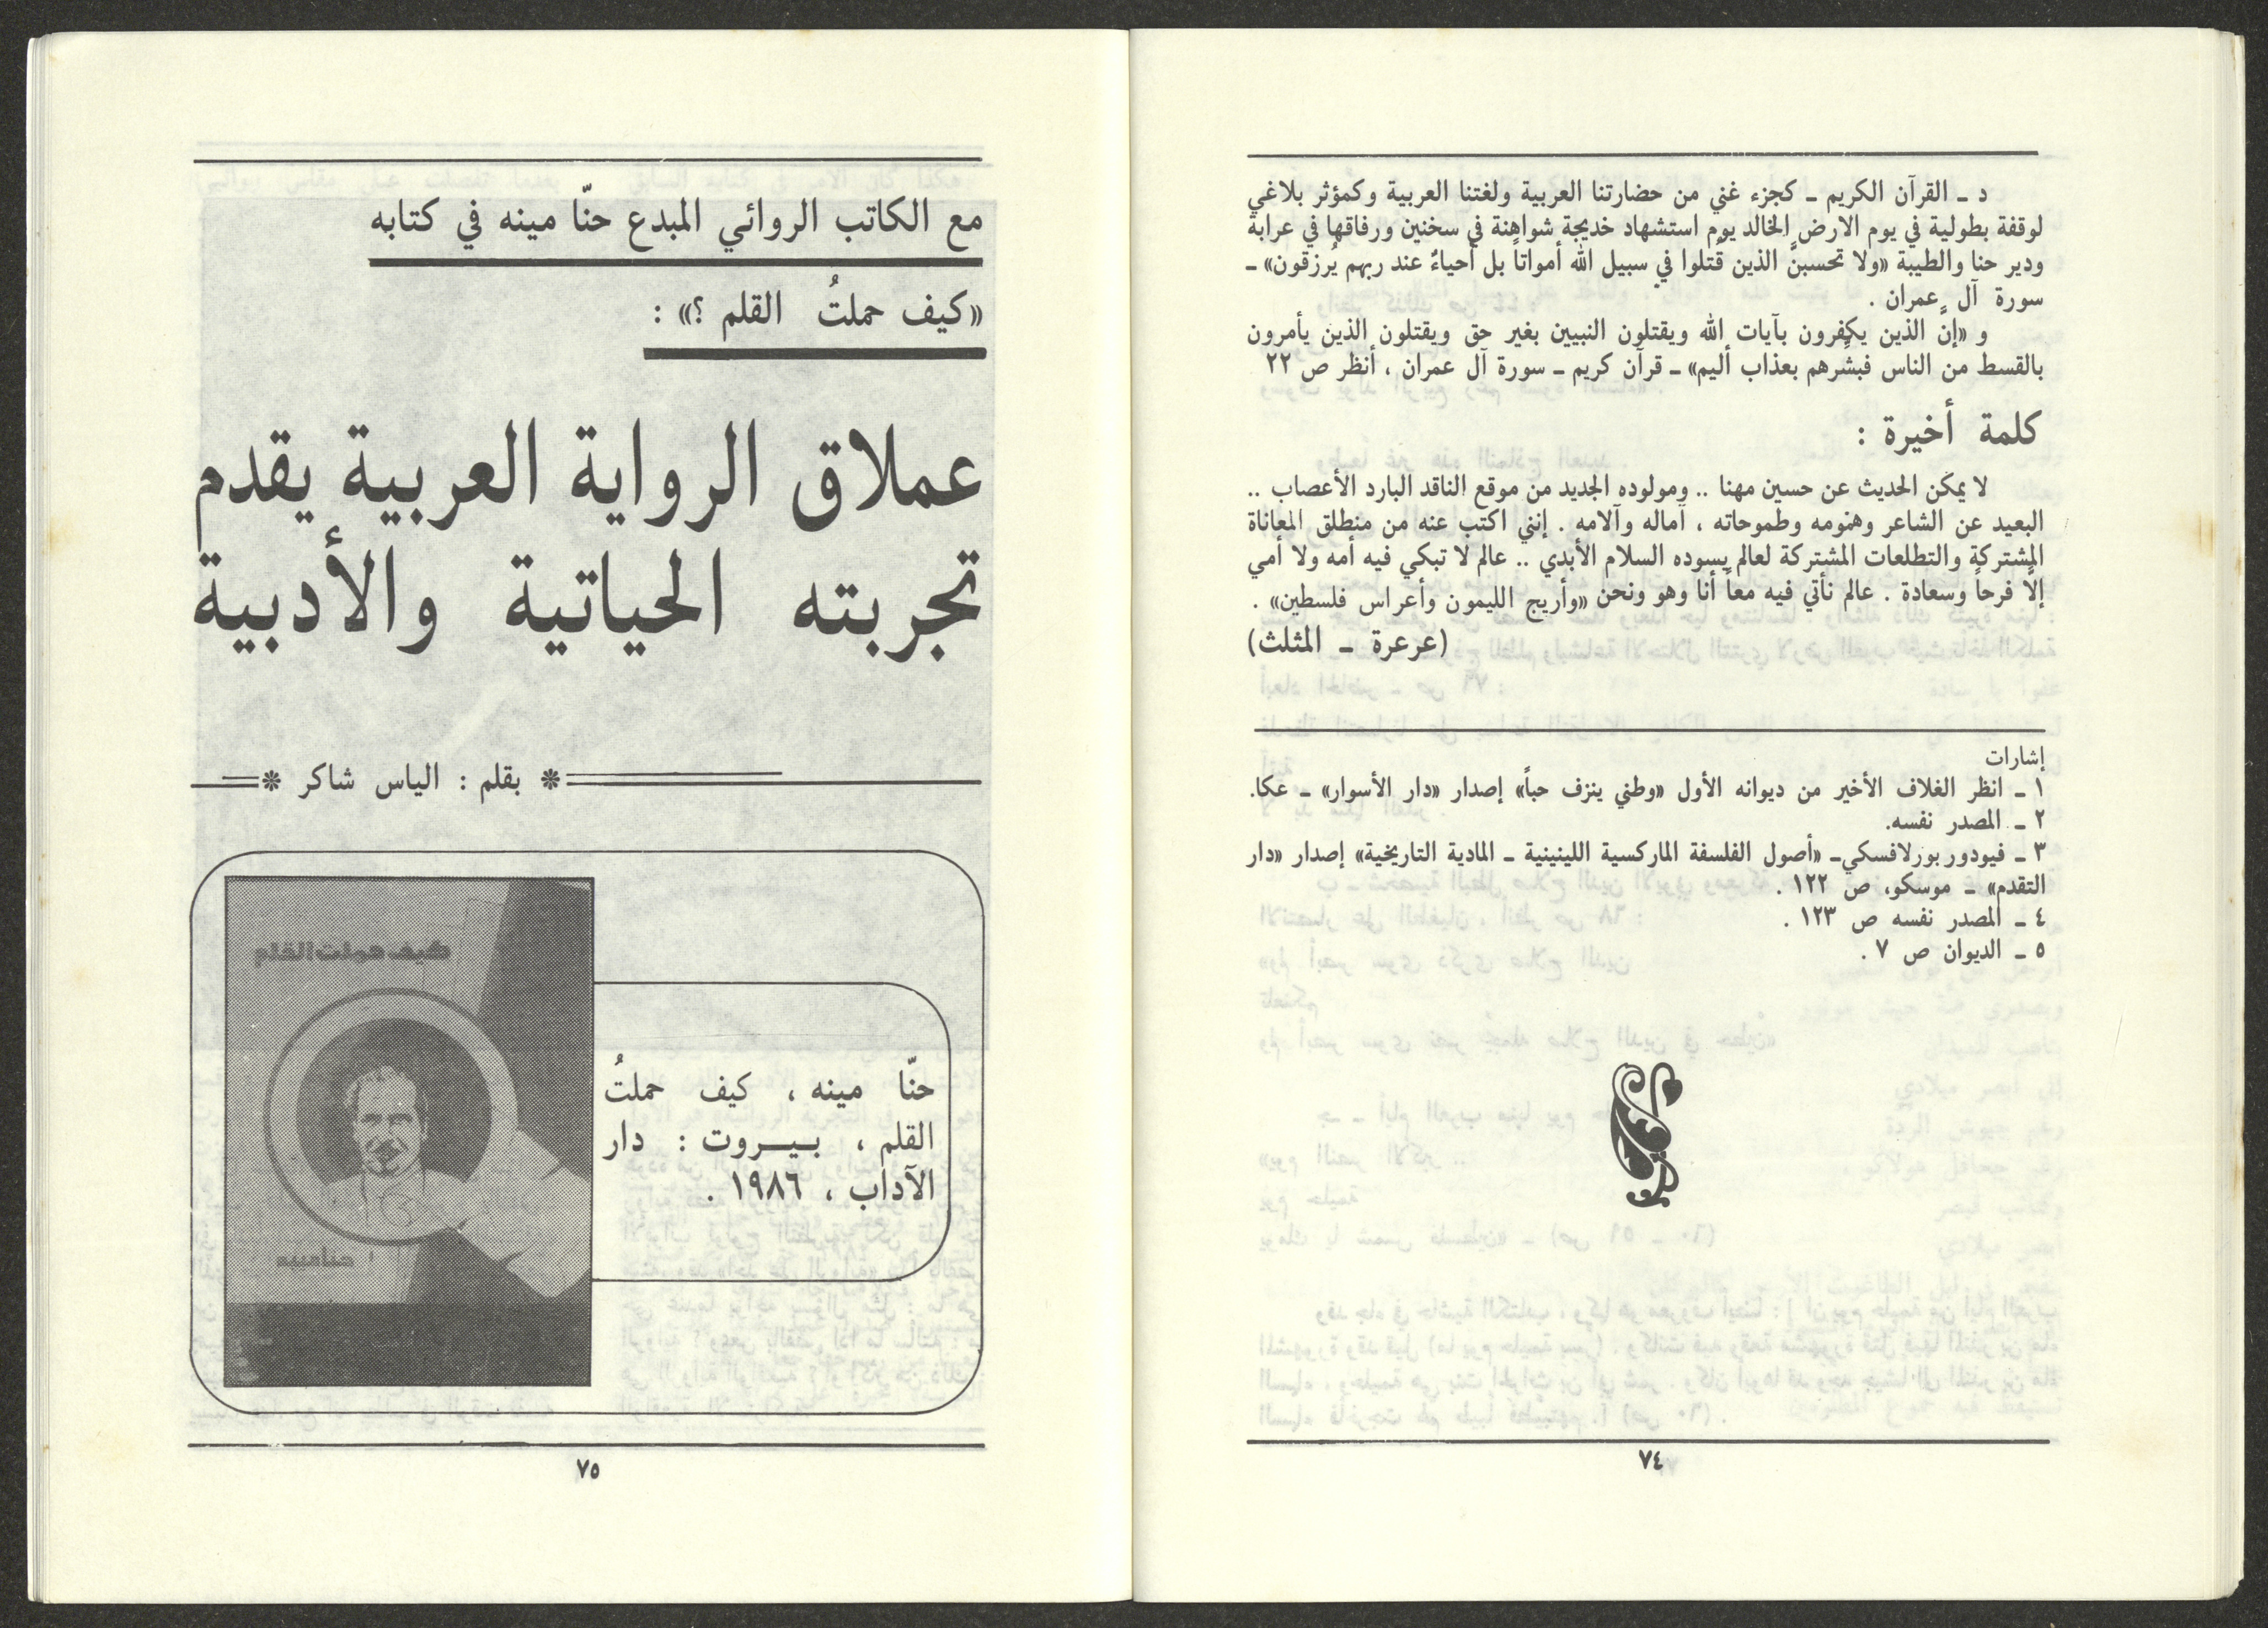 د ـ القرآن الكريم ـ كجزء غني من حضارتنا العربية ولغتنا العربية وكمؤثر بلاغي
لوقفة بطولية في يوم الارض الخالد يوم استشهاد خديجة شواهنة في سخنين ورفاقها في عرابة
ودير حنا والطيبة «ولا تحسبنَّ الذين قُتلوا في سبيل الله أمواتاً بل أحياءٌ عند ربهم يُرزقون» ـ
سورة آل عمران .
و «إنَّ الذين يكفرون بآيات الله ويقتلون النبيين بغير حق ويقتلون الذين يأمرون
بالقسط من الناس فبشِّرهم بعذاب أليم» ـ قرآن كريم ـ سورة آل عمران ، أنظر ص ٢٢
كلمة أخيرة :
لا يمكن الحديث عن حسين مهنا .. ومولوده الجديد من موقع الناقد البارد الأعصاب ..
البعيد عن الشاعر وهمومه وطموحاته ، آماله وآلامه . إنني اكتب عنه من منطلق المعاناة
المشتركة والتطلعات المشتركة لعالم يسوده السلام الأبدي .. عالم لا تبكي فيه أمه ولا أمي
إلَّا فرحاً وسعادة . عالم نأتي فيه معاً أنا وهو ونحن «وأريج الليمون وأعراس فلسطين» .
(عرعرة ـ المثلث)
إشارات
١ ـ انظر الغلاف الأخير من ديوانه الأول «وطني ينزف حباً» إصدار «دار الأسوار» ـ عكا.
٢ ـ المصدر نفسه.
٣ ـ فيودور بورلافسكي ـ «أصول الفلسفة الماركسية اللينينية ـ المادية التاريخية» إصدار «دار
التقدم» ـ موسكو، ص ١٢٢ .
٤ ـ المصدر نفسه ص ١٢٣ .
٥ ـ الديوان ص ٧ .
٧٤
مع الكاتب الروائي المبدع حنّا مينه في كتابه
«كيف حملتُ القلم ؟» :
عملاق الرواية العربية يقدم
تجربته الحياتية والأدبية
* بقلم : الياس شاكر *
كيف حملت القلم
حنا مينه
حنّا مينه ، كيف حملتُ
القلم ، بيروت : دار
الآداب ، ١٩٨٦ .
٧٥